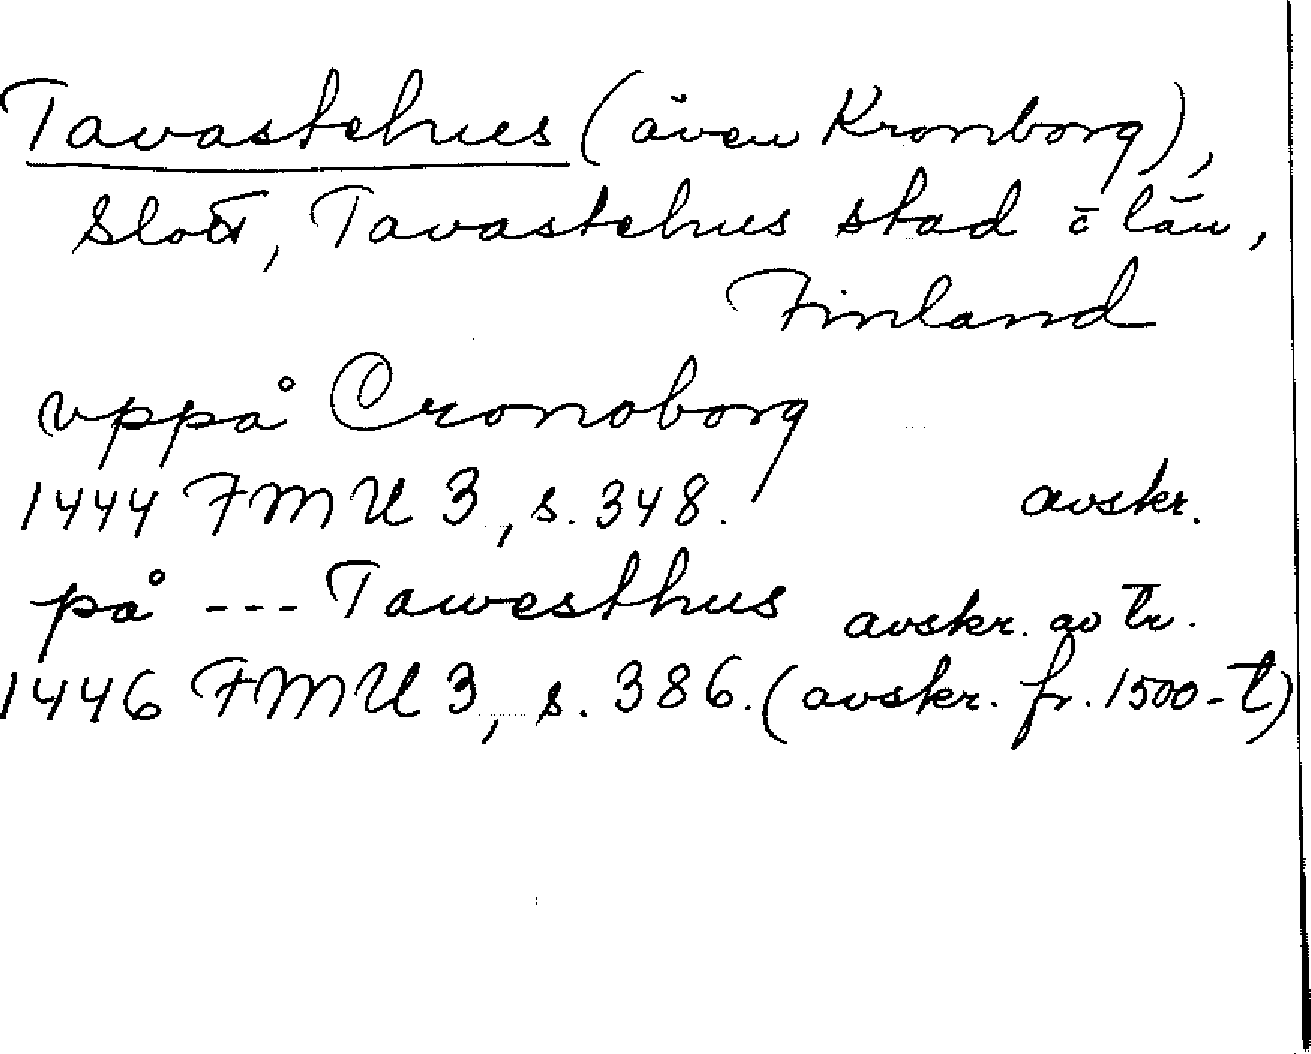 Tavastehus (även Kronborg),
slott, Tavastehus stad o län,
Finland
vppå Cronoborg
1444 FMU 3, s. 348. avskr.
på --- Tawesthus avskr. av tr.
1446 FMU 3, s. 386. (avskr. fr. 1500-t)